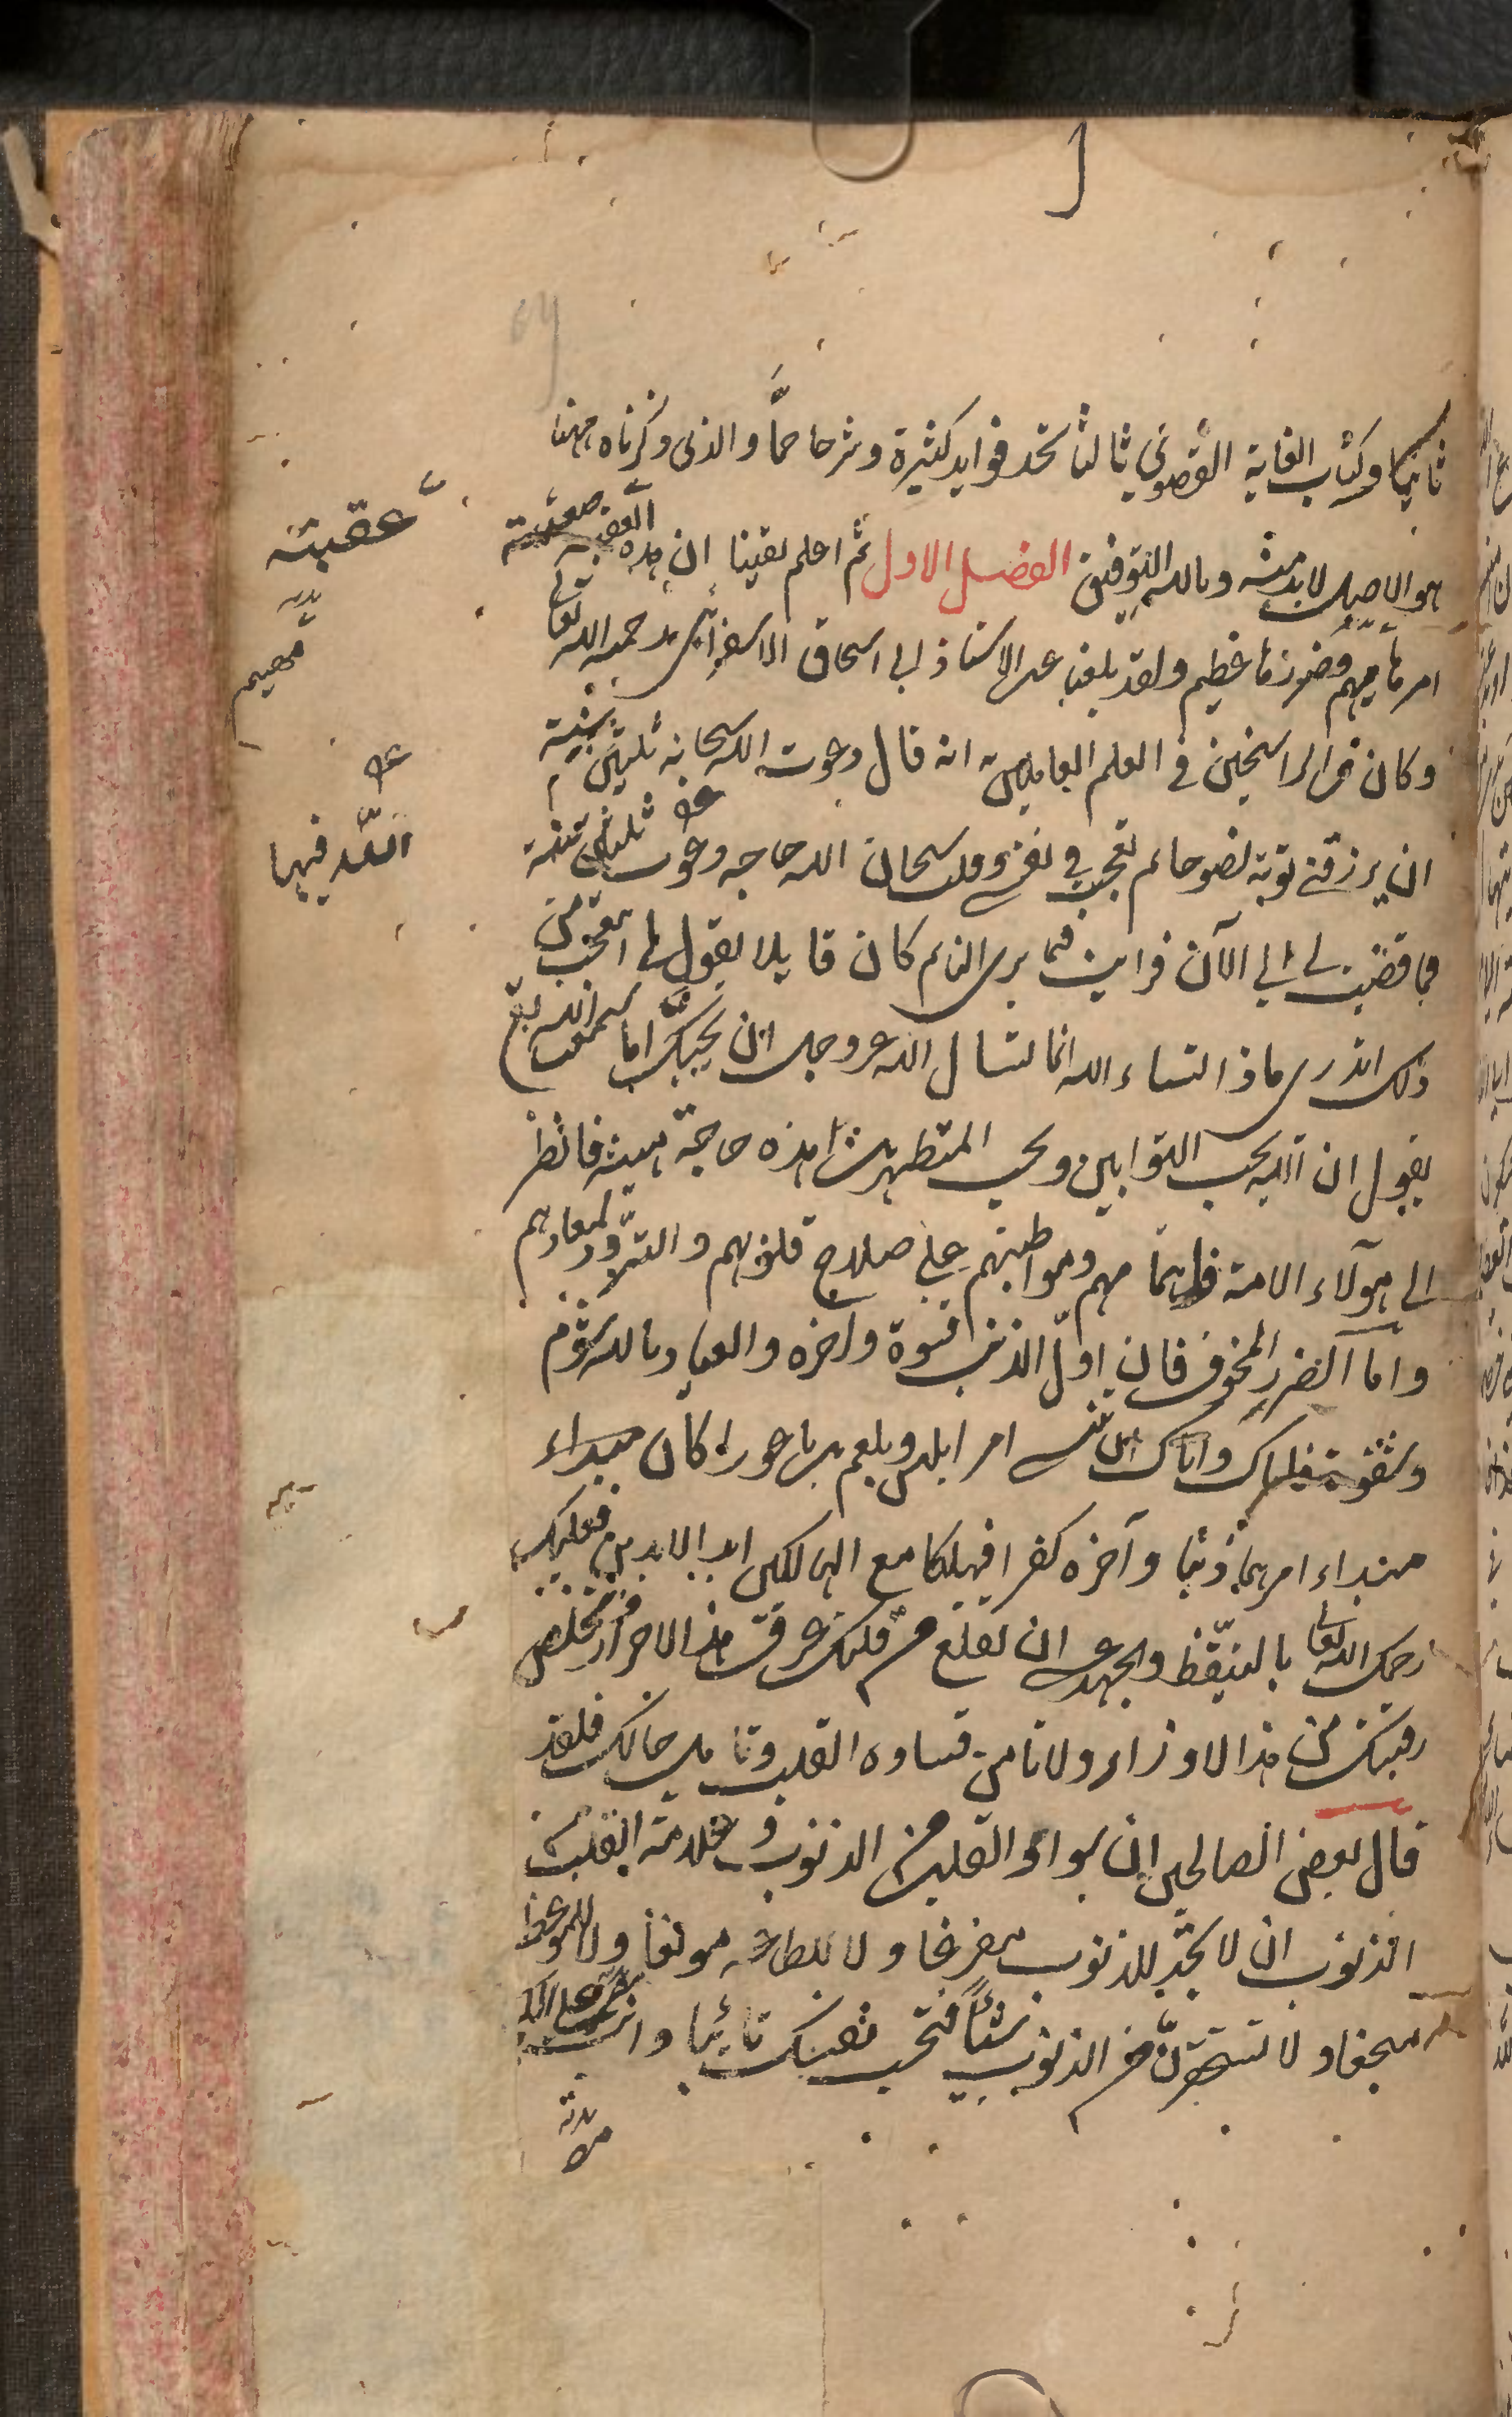 ثانيا وكتاب الغاية القصوي ثالثا تجد فوايد كثيرة وشرحا جمّا والذي ذكرناه ههنا
هو الاصل لا بد منه وبالله التوفيق الفصل الاول ثم اعلم يقينا ان هذه العقبة صعبة
امرها مهم وضررها عظيم ولقد بلغنا عن الاستاذ ابي اسحاق الاسفرائني رحمه الله تعالى
وكان من الراسخين في العلم العاملين به انه قال دعوت الله سبحانه ثلثين سنة
ان يرزقني توبة نصوحا ثم تعجبت في نفسي وقلت سبحان الله حاجة دعوت ثلثين سنة
فما قضيت لي الي الآن فرايت فيما يرى النائم كان قايلا يقول لي اتعجب من
ذلك اتدري ماذا تساء الله انما تسال الله عز وجل ان يحبك اما سمعت الله تعالى
يقول ان الله يحب التوابين ويحب المتطهرين اهذه حاجة هينة فانظر
الى هولاء الامة واهتمامهم ومواظبتهم علي صلاح قلوبهم والتزود لمعادهم
واما الضرر المخوف فان اول الذنب قسوة واخره والعياد بالله شوم
وشقوة فاياك واياك ان تنسى امر ابليس وبلعم بن باعورا كان مبداء
مبداء امرهما ذنبا وآخره كفرا فهلكا مع الهالكين ابد الابدين فعليك
رحمك الله تعالى بالتيقظ والجهد عسى ان تقلع من قلبك عرق هذا الاصرار وتخلص
رقبتك من هذا الاوزار ولا تامن قساوه القلب وتامل حالك فلقد
قال بعض الصالحين ان سواد القلب من الذنوب وعلامة القلب
الذنوب ان لا تجد للذنوب مفزعا ولا للطاعة موقعا ولا للموعظة
منجعا ولا تستحقرن من الذنوب شيئا فتحسب نفسك تائبا وانت مصر على الكبائر
عقبته
الله فيها